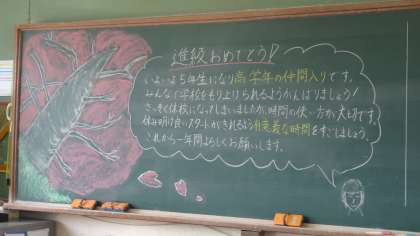 進級おめでとう!
いよいよ5年生になり高学年の仲間入りです。
みんなで学校をもり上げられるようがんばりましょう!
さっそく休校になってしまいましたが、時間の使い方が大切です。
休み明け良いスタートがきれるよう有意義な時間をすごしましょう。
これから一年間よろしくお願いします。